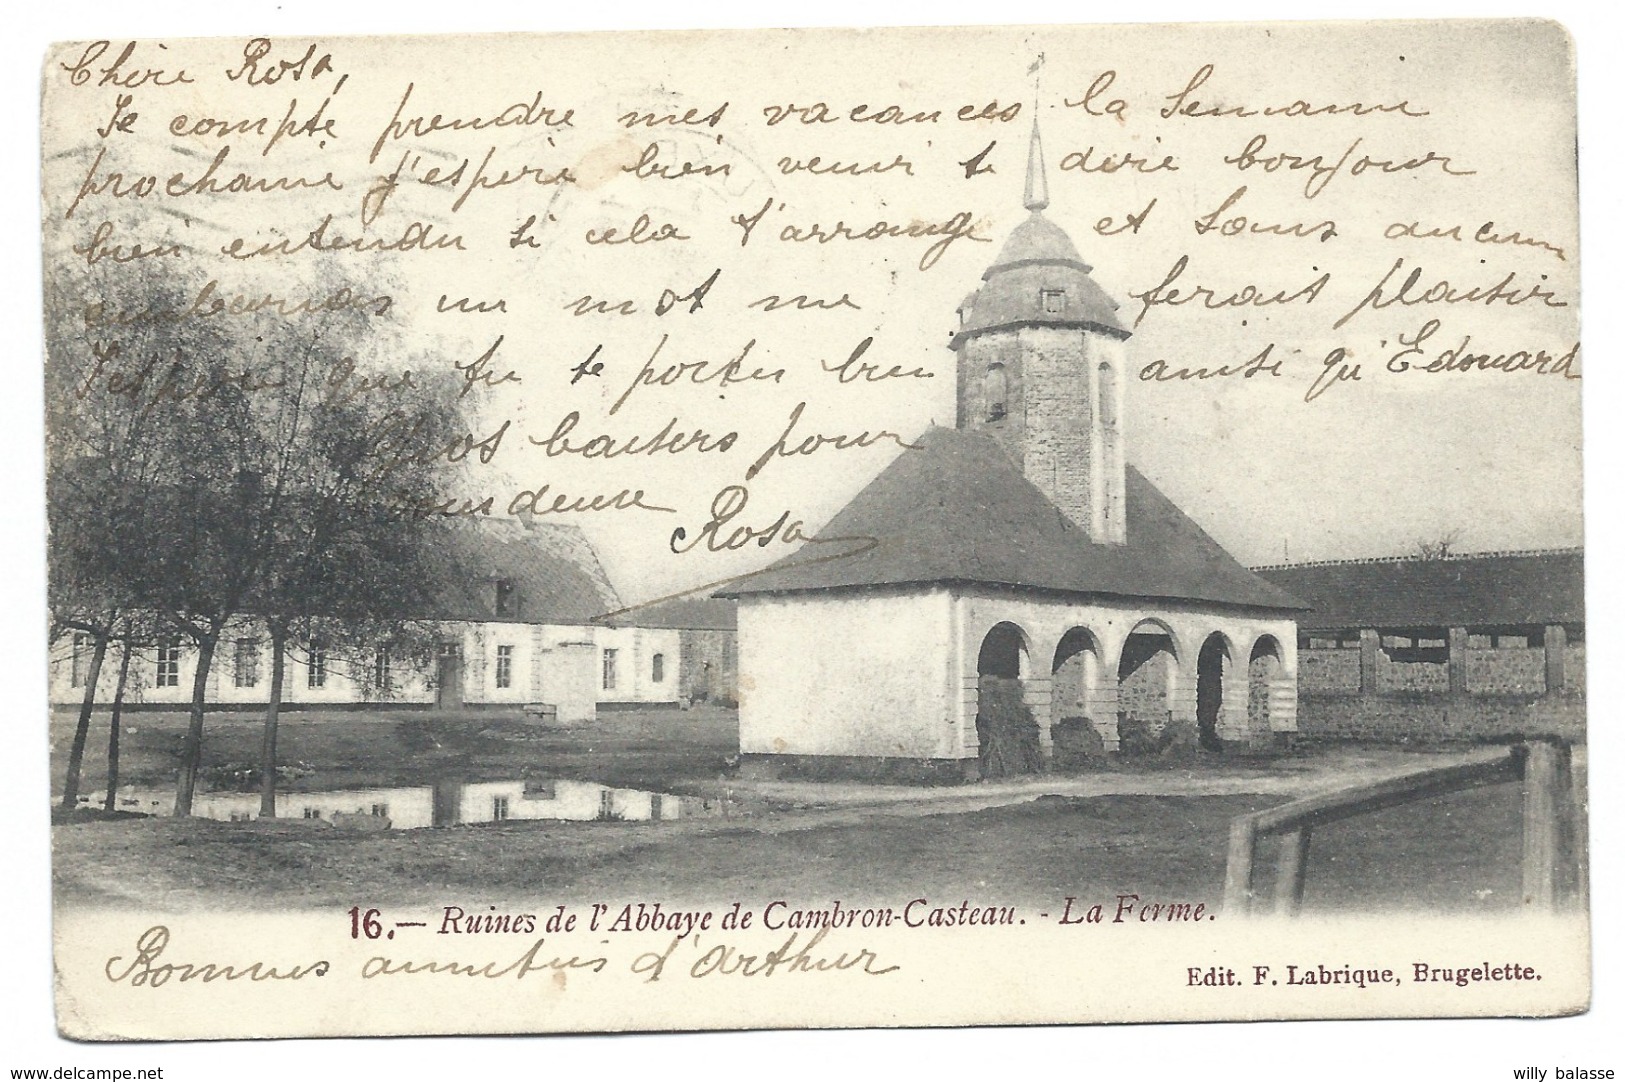 Chère Rosa,
Je compte prendre mes vacances la Semaine
prochaine j'espère bien venir te dire bonjour
bien entendu si cela t'arrange et sans aucun
embarras un mot me ferait plaisir
J'espère que tu te portes bien ainsi qu'Edouard
Gros baisers pour
vous deux
Rosa
16.— Ruines de l'Abbaye de Cambron-Casteau. - La Ferme.
Bonnes amitiés d'Arthur
Edit. F. Labrique, Brugelette.
willy balasse